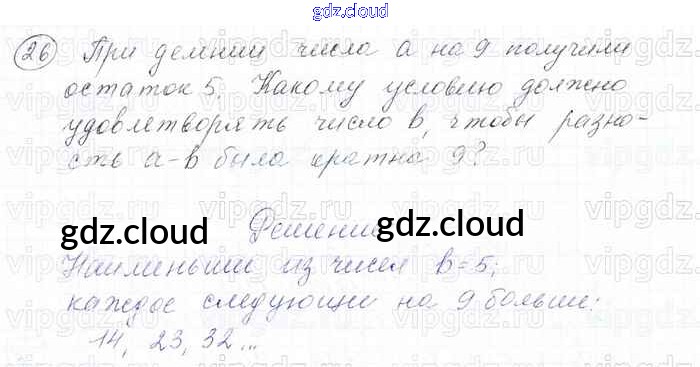 gdz.cloud
26 При делении числа a на 9 получили
остаток 5. Какому условию должно
удовлетворять число b, чтобы разно-
сть a-b была кратна 9?
gdz.cloud Решение gdz.cloud
Наименьши из чисел b=5;
каждое следующии на 9 больше:
14, 23, 32...